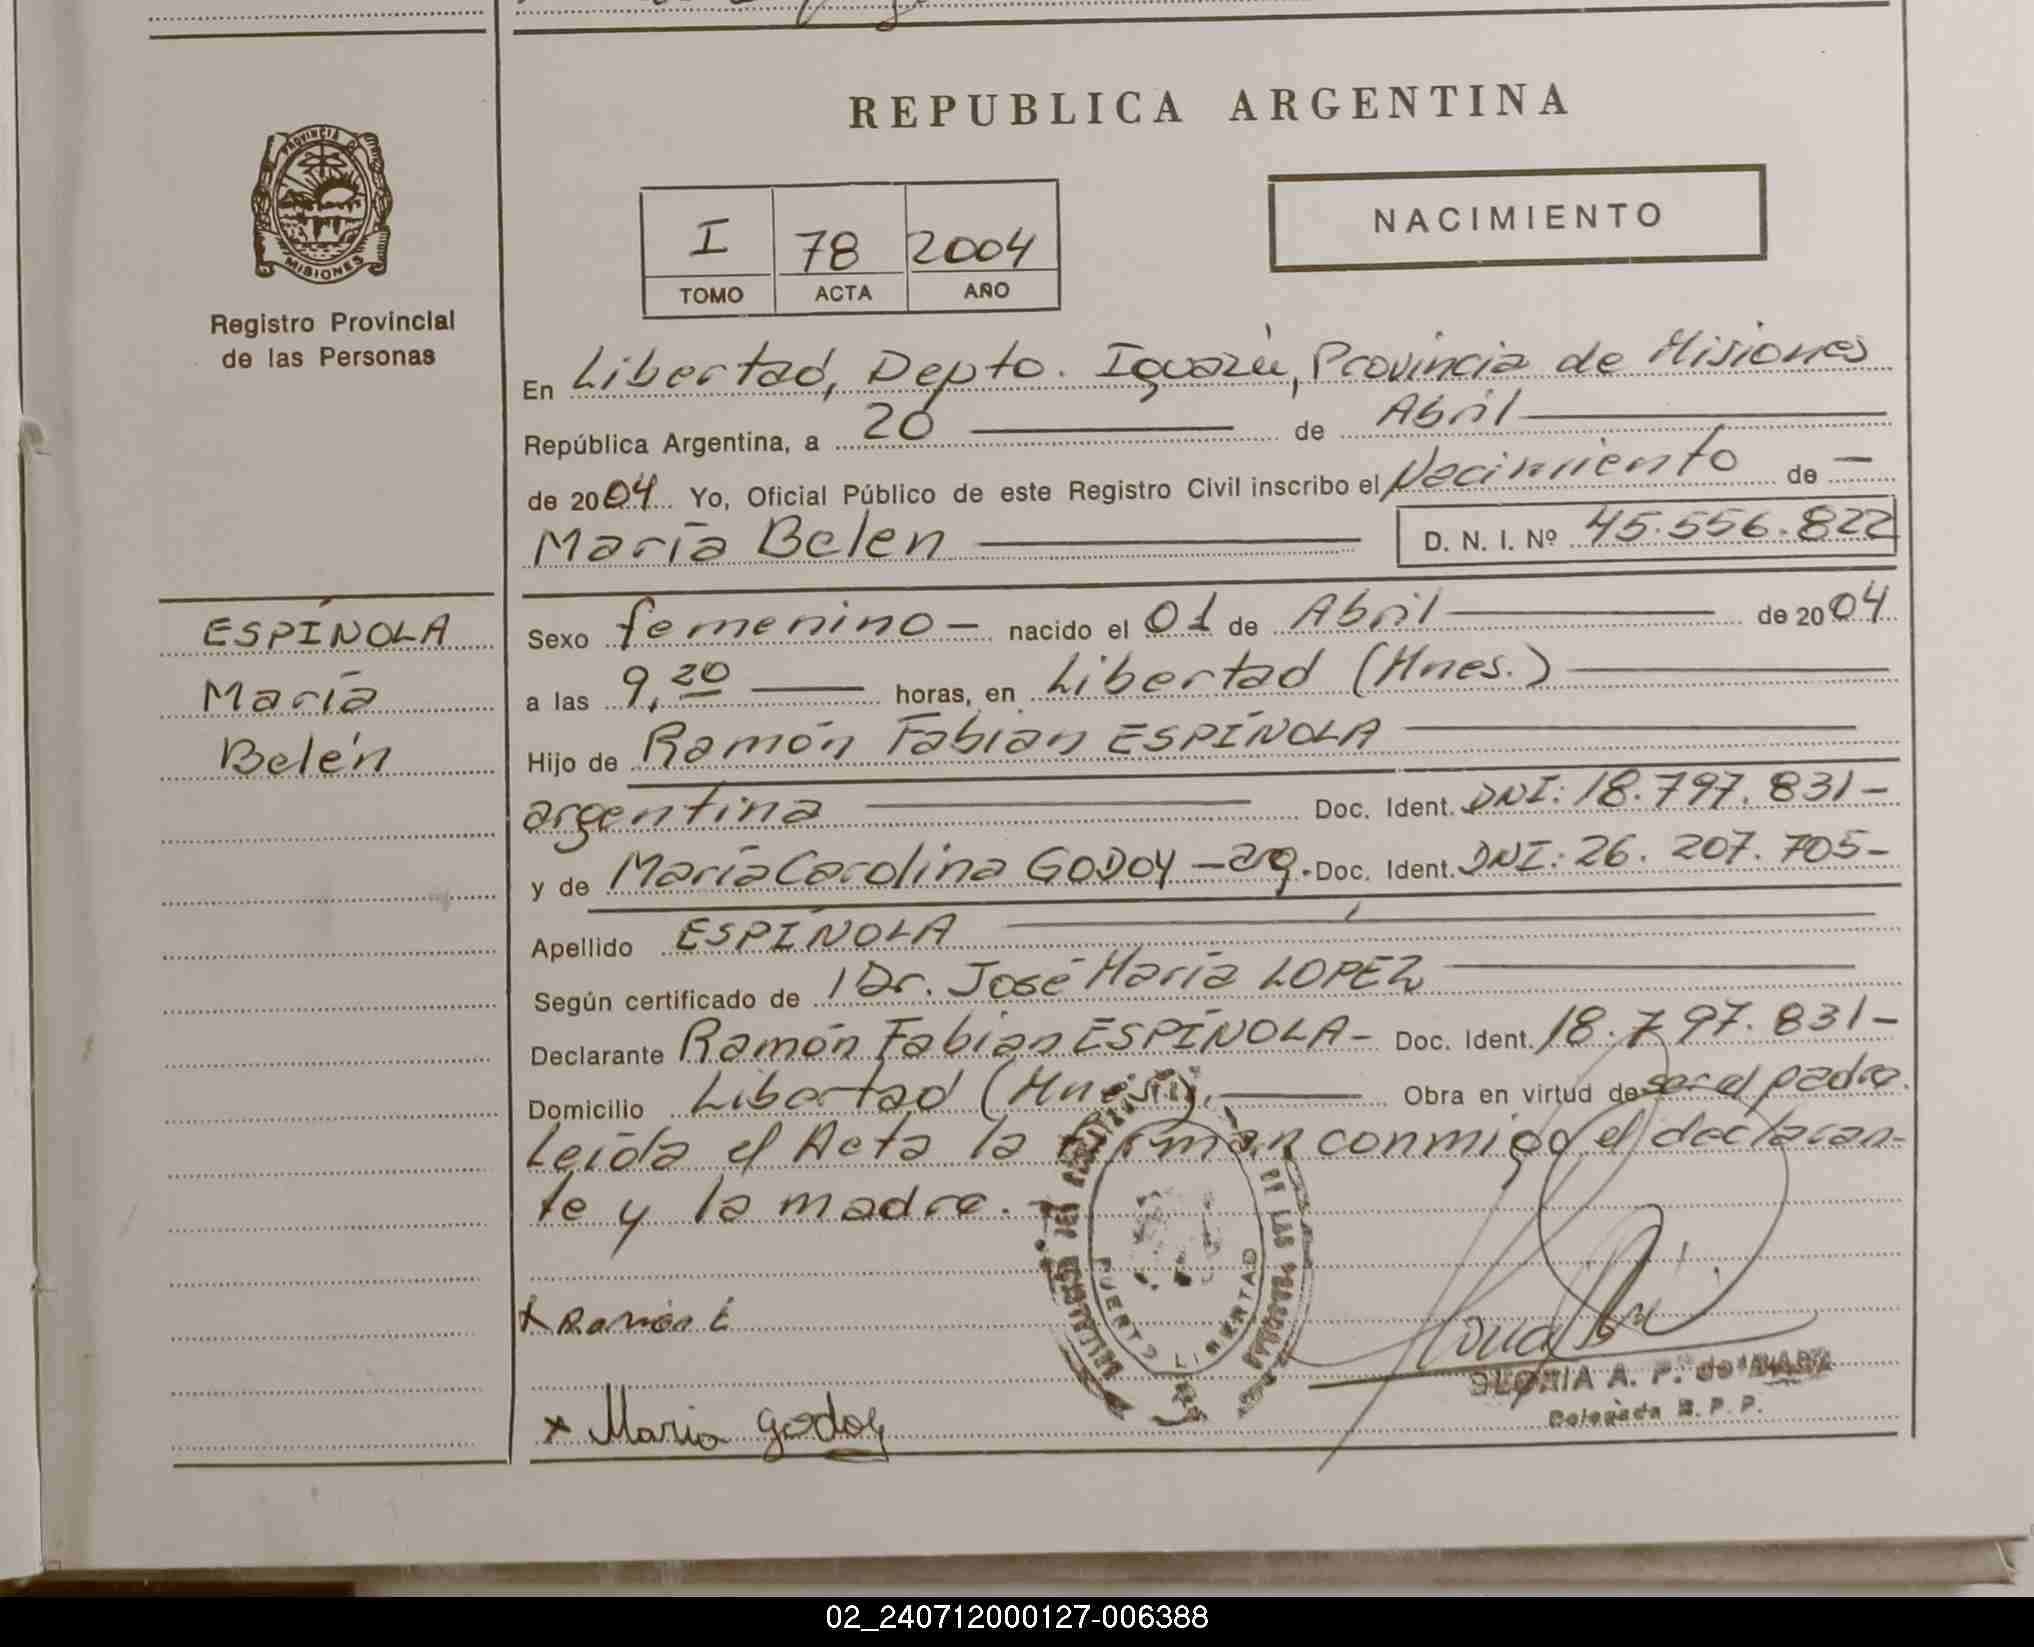 REPUBLICA ARGENTINA
PROVINCIA DE
MISIONES
Registro Provincial
de las Personas
NACIMIENTO
I 78 2004
TOMO ACTA AÑO
En Libertad, Depto. Iguazú, Provincia de Misiones
República Argentina, a 20 — de Abril —
de 2004 Yo, Oficial Público de este Registro Civil inscribo el Nacimiento de —
María Belen — D. N. I. Nº 45.556.822
ESPÍNOLA
María
Belén
Sexo femenino — nacido el 01 de Abril — de 2004
a las 9,20 — horas, en Libertad (Mnes.) —
Hijo de Ramón Fabian ESPÍNOLA —
argentina — Doc. Ident. DNI: 18.797.831-
y de María Carolina GODOY - arg. Doc. Ident. DNI: 26.207.705-
Apellido ESPÍNOLA —
Según certificado de Dr. José María LOPEZ —
Declarante Ramón Fabian ESPÍNOLA - Doc. Ident. 18.797.831-
Domicilio Libertad (Mnes). — Obra en virtud de ser el padre.
Leída el Acta la firman conmigo el declaran-
te y la madre.-
DELEGACION DEL REGISTRO DE LAS PERSONAS
PUERTO LIBERTAD
x Ramón E
GLORIA A. P. de
Delegada R. P. P.
x Maria godoy
02_240712000127-006388